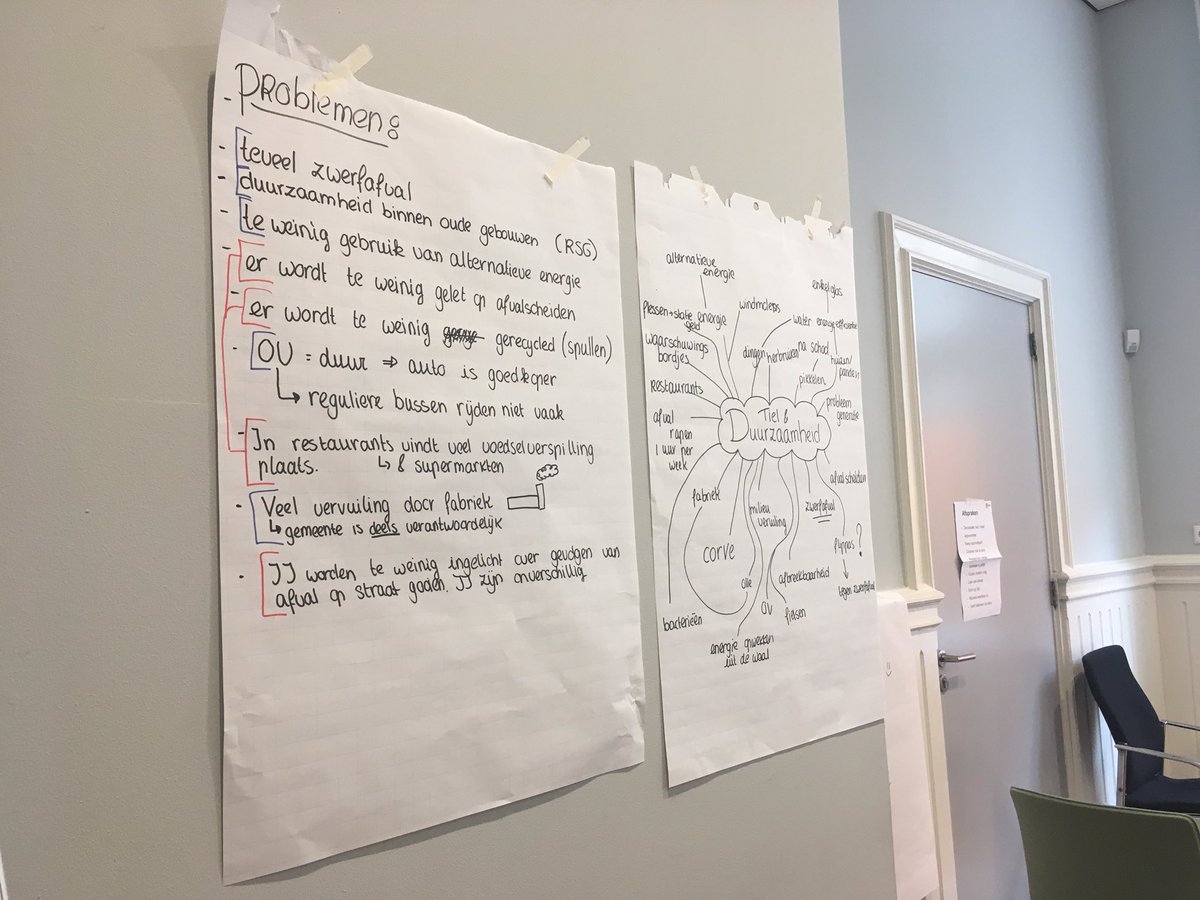 Problemen:
- teveel zwerfafval
- duurzaamheid binnen oude gebouwen (RSG)
- te weinig gebruik van alternatieve energie
- er wordt te weinig gelet op afvalscheiden
- er wordt te weinig gerecycled (spullen)
- OV = duur ⇒ auto is goedkoper
↳ reguliere bussen rijden niet vaak
- In restaurants vindt veel voedselverspilling
plaats. ↳ & supermarkten
- Veel vervuiling door fabriek
↳ gemeente is deels verantwoordelijk
- JJ worden te weinig ingelicht over gevolgen van
afval op straat gooien. JJ zijn onverschillig
Tiel &
Duurzaamheid
alternatieve
energie
energie
windmolens
enkel glas
water
energie efficiënte
huizen/
panden
flessen + statiegeld
waarschuwings
bordjes
dingen herbruiken
na school
prikkelen
restaurants
probleem
generatie
afval
rapen
1 uur per
week
afval scheiden
fabriek
milieu
vervuiling
zwerfafval
flippos?
tegen zwerfafval
corvee
olie
afbreekbaarheid
OV
fietsen
bacteriëen
energie opwekken
uit de waal
Afspraken